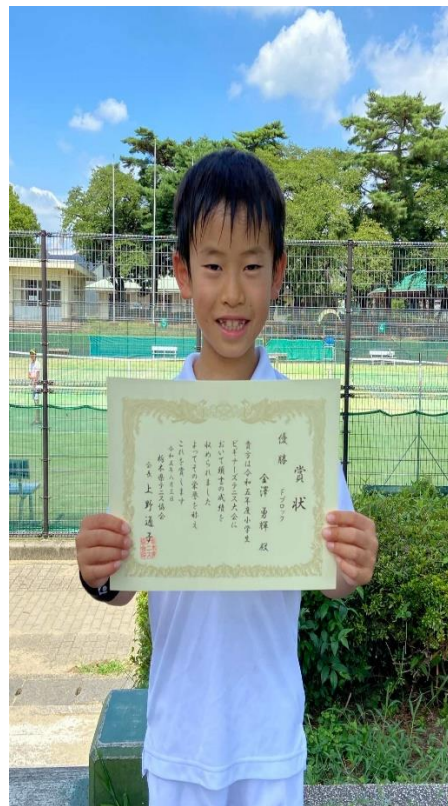 賞状
優勝 Fブロック
金澤 勇輝 殿
貴方は令和五年度小学生
ビギナーズテニス大会に
おいて頭書の成績を
収められました
よってその栄誉を称え
これを賞します
令和五年八月三日
栃木県テニス協会
会長 上野通子